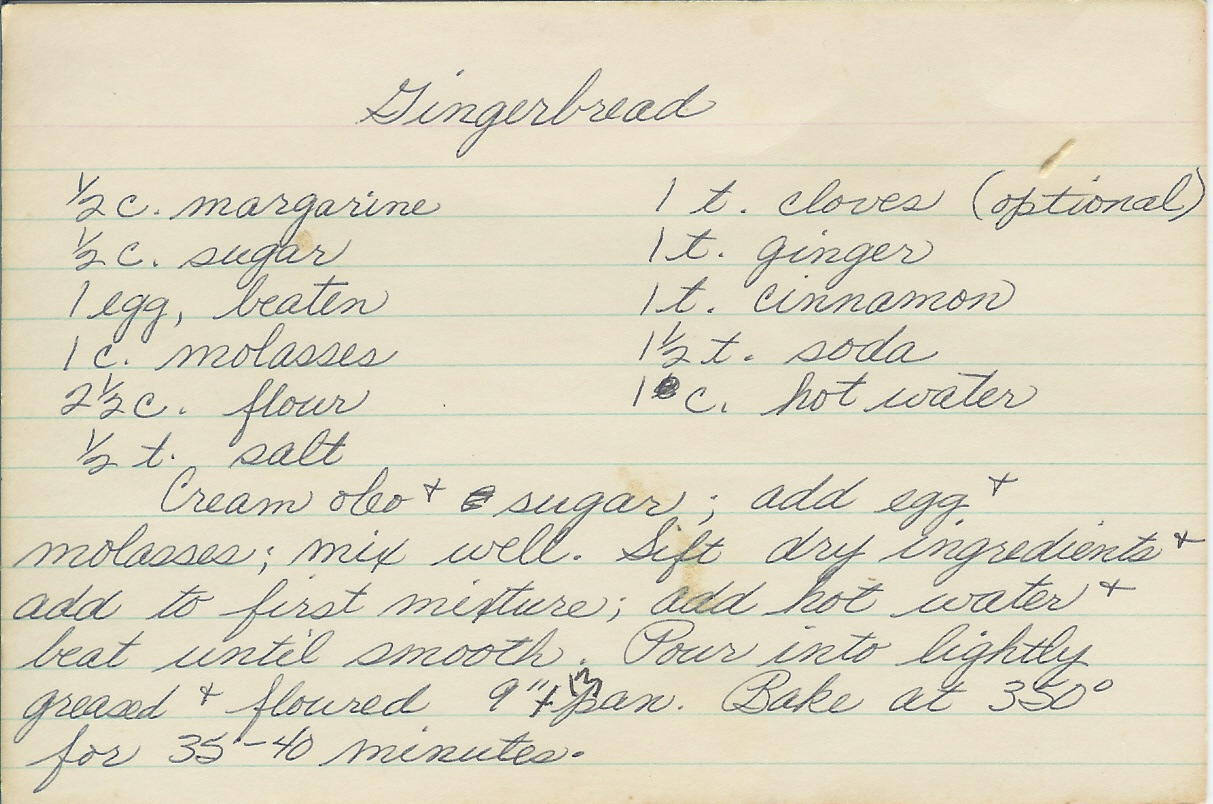 Gingerbread
½ c. margarine
½ c. sugar
1 egg, beaten
1 c. molasses
2½ c. flour
½ t. salt
1 t. cloves (optional)
1 t. ginger
1 t. cinnamon
1½ t. soda
1 c. hot water
Cream oleo + sugar; add egg +
molasses; mix well. Sift dry ingredients +
add to first mixture; add hot water +
beat until smooth. Pour into lightly
greased + floured 9" x 13 pan. Bake at 350°
for 35-40 minutes.